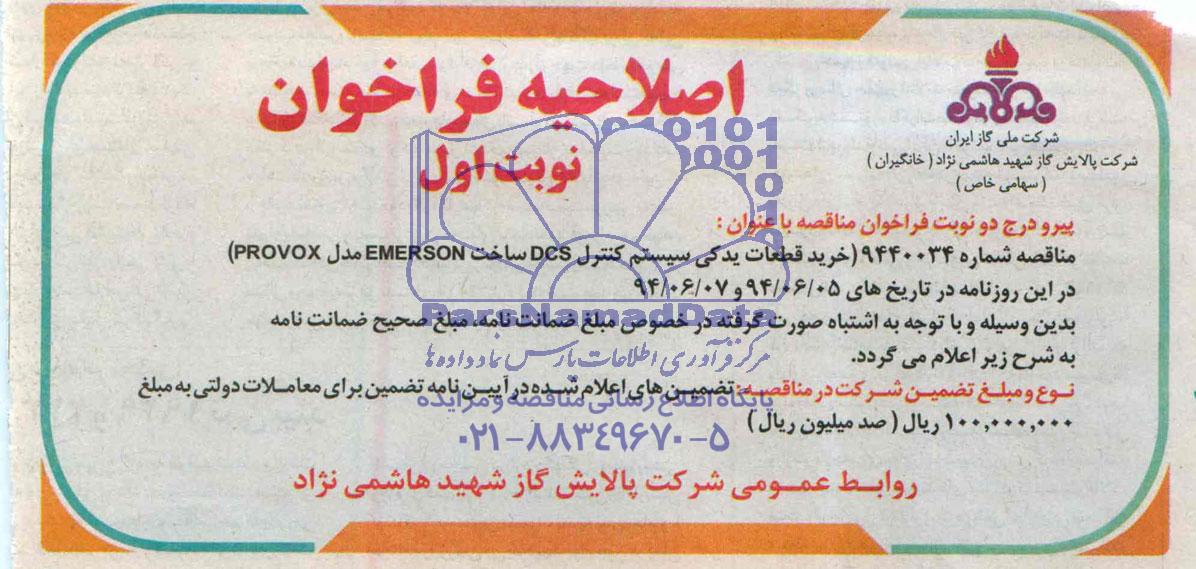 اصلاحیه فراخوان
نوبت اول
شرکت ملی گاز ایران
شرکت پالایش گاز شهید هاشمی نژاد ( خانگیران )
( سهامی خاص )
پیرو درج دو نوبت فراخوان مناقصه با عنوان :
مناقصه شماره ۹۴۴۰۰۳۴ (خرید قطعات یدکی سیستم کنترل DCS ساخت EMERSON مدل PROVOX)
در این روزنامه در تاریخ های ۹۴/۰۶/۰۵ و ۹۴/۰۶/۰۷
بدین وسیله و با توجه به اشتباه صورت گرفته در خصوص مبلغ ضمانت نامه، مبلغ صحیح ضمانت نامه
به شرح زیر اعلام می گردد.
نوع و مبلغ تضمین شرکت در مناقصه : تضمین های اعلام شده در آیین نامه تضمین برای معاملات دولتی به مبلغ
۱۰۰,۰۰۰,۰۰۰ ریال ( صد میلیون ریال )
روابط عمومی شرکت پالایش گاز شهید هاشمی نژاد
ParsNamadData
مرکز فرآوری اطلاعات پارس نماد داده ها
پایگاه اطلاع رسانی مناقصه و مزایده
۰۲۱-۸۸۳۴۹۶۷۰-۵